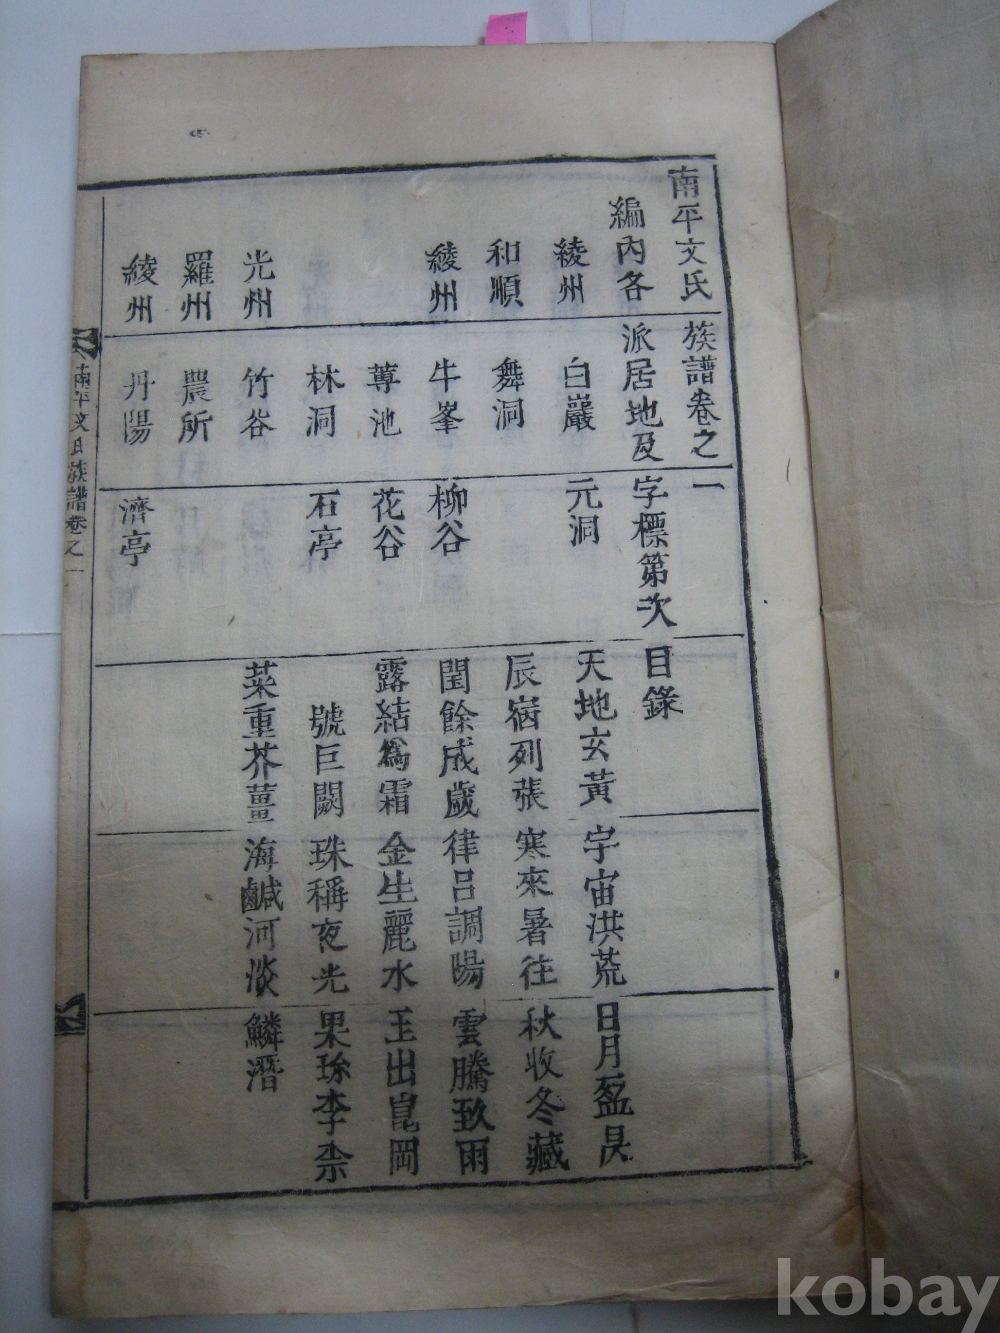 南平文氏族譜卷之一
編內各派居地及字標第次目錄
綾州 白巖 元洞 天地玄黃 宇宙洪荒 日月盈昃
和順 舞洞 辰宿列張 寒來暑往 秋收冬藏
綾州 牛峯 柳谷 閏餘成歲 律呂調陽 雲騰致雨
蓴池 花谷 露結爲霜 金生麗水 玉出崑岡
林洞 石亭 號巨闕 珠稱夜光 果珍李柰
光州 竹谷 菜重芥薑 海鹹河淡 鱗潛
羅州 農所
綾州 丹陽 濟亭
南平文氏族譜卷之一
kobay